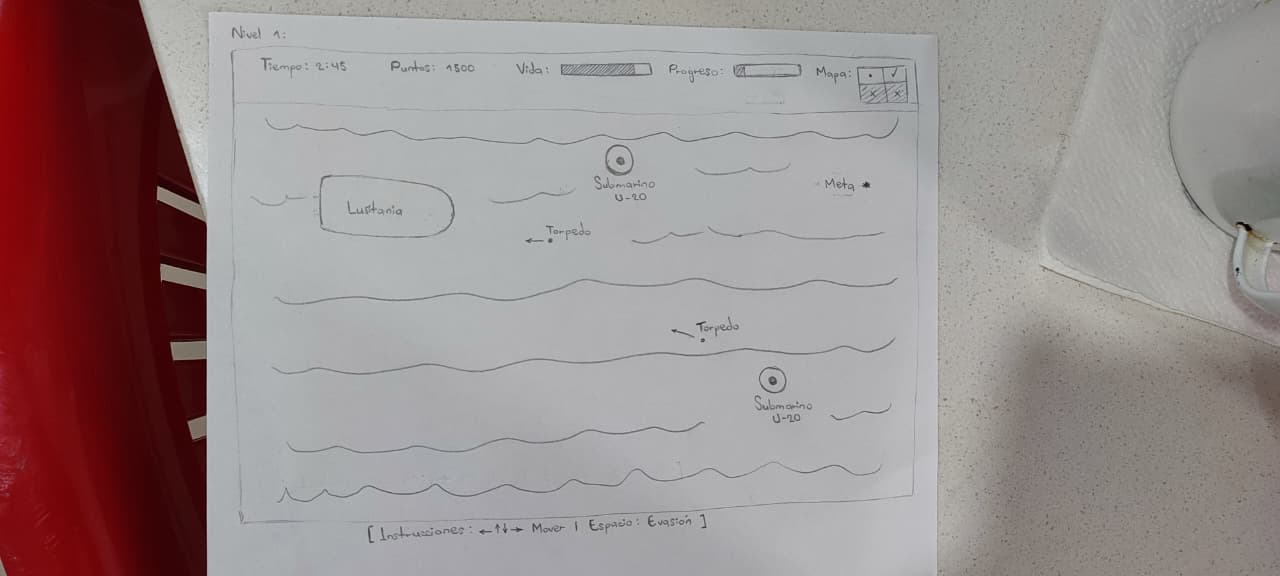 Nivel 1:
Tiempo: 2:45 Puntos: 1500 Vida: Progreso: Mapa:
Submarino
U-20
Meta
Lusitania
Torpedo
Torpedo
Submarino
U-20
[Instrucciones: ←↑↓→ Mover | Espacio: Evasión]